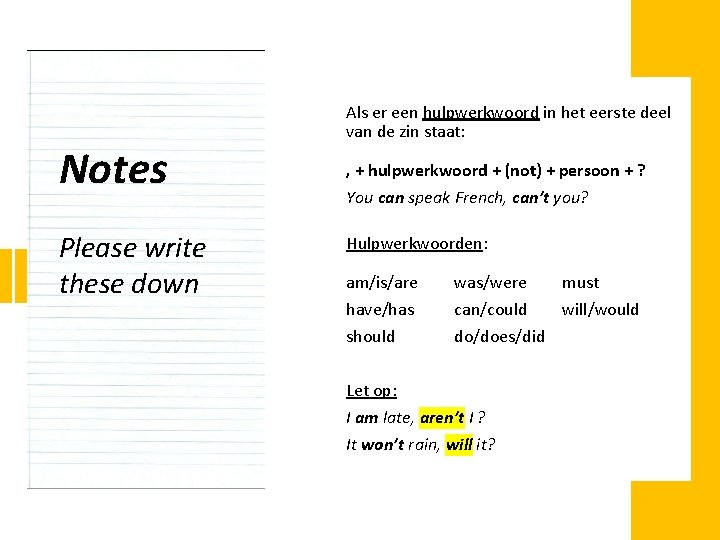 Notes
Please write
these down
Als er een hulpwerkwoord in het eerste deel
van de zin staat:
, + hulpwerkwoord + (not) + persoon + ?
You can speak French, can't you?
Hulpwerkwoorden:
am/is/are was/were must
have/has can/could will/would
should do/does/did
Let op:
I am late, aren't I ?
It won't rain, will it?